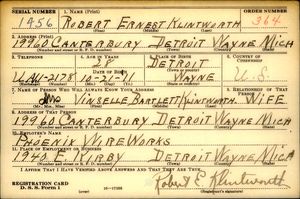 SERIAL NUMBER 1. NAME (Print) ORDER NUMBER
1956 ROBERT ERNEST KLINTWORTH 364
2. ADDRESS (Print)
19960 CANTERBURY DETROIT WAYNE MICH
3. TELEPHONE 4. AGE IN YEARS 5. PLACE OF BIRTH 6. COUNTRY OF CITIZENSHIP
DETROIT
DATE OF BIRTH
10-21-11 WAYNE U.S.
7. NAME OF PERSON WHO WILL ALWAYS KNOW YOUR ADDRESS 8. RELATIONSHIP OF THAT PERSON
BARTLETT KLINTWORTH WIFE
9. ADDRESS OF THAT PERSON
19960 CANTERBURY DETROIT WAYNE MICH
10. EMPLOYER'S NAME
PHOENIX WIRE WORKS
11. PLACE OF EMPLOYMENT OR BUSINESS
1940 E. KIRBY DETROIT WAYNE MICH
I AFFIRM THAT I HAVE VERIFIED ABOVE ANSWERS AND THAT THEY ARE TRUE.
REGISTRATION CARD
D. S. S. Form 1
Robert E Klintworth